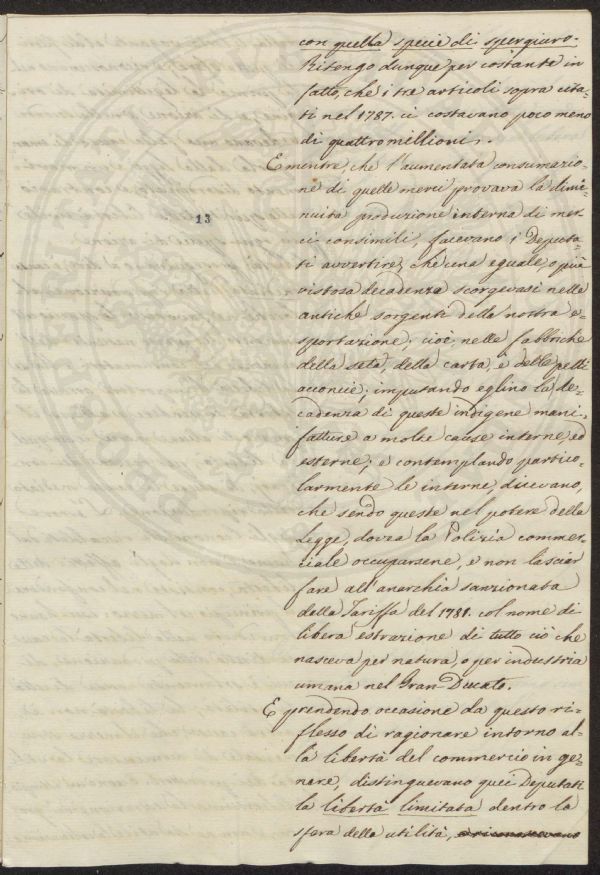 con quella specie di spergiuro.
Ritengo dunque per costante in
fatto, che i tre articoli sopra cita=
ti nel 1787. ci costavano poco meno
di quattro millioni.
E mentre, che l'aumentata consumazio=
ne di quelle merci provava la dimi=
nuita produzione interna di mer=
ci consimili, facevano i Deputa=
ti avvertire, che una eguale, o più
vistosa decadenza scorgevasi nelle
antiche sorgenti della nostra e=
sportazione; cioè, nelle fabbriche
della seta, della carta, e delle pelli
acconcie; imputando eglino la de=
cadenza di queste indigene mani=
fatture a molte cause interne, ed
esterne; e contemplando partico=
larmente le interne, dicevano,
che sendo queste nel potere della
Legge, dovea la Polizia commer=
ciale occuparsene, e non lasciar
fare all'anarchia sanzionata
dalla Tariffa del 1781. col nome di
libera estrazione di tutto ciò che
nasceva per natura, o per industria
umana nel Gran-Ducato.
E prendendo occasione da questo ri=
flesso di ragionare intorno al=
la libertà del commercio in ge=
nere, distinguevano quei Deputati
la libertà limitata dentro la
sfera della utilità,
13